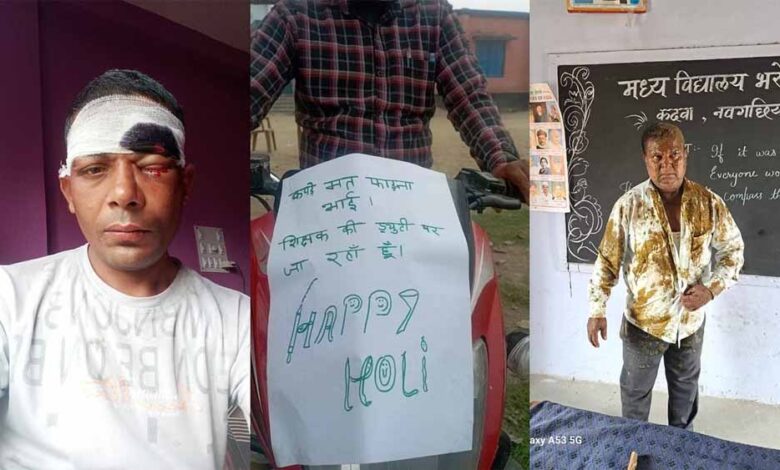 कपड़े मत फाड़ना
भाई।
शिक्षक की ड्यूटी पर
जा रहा हूँ।
HAPPY
HOLI
मध्य विद्यालय भरो
कदवा, नवगछिय
If it was
Everyone wou
compass
Galaxy A53 5G